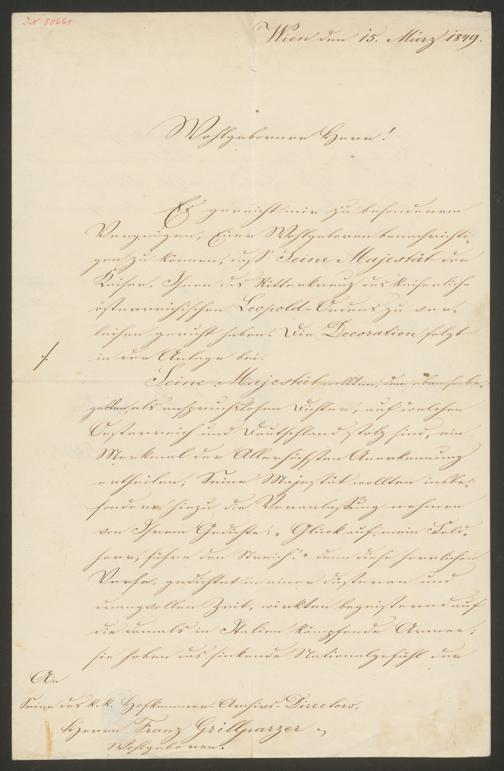 Wien den 15. März 1849.
Wohlgeborner Herr!
Es gereicht mir zu besonderem
Vergnügen, Euer Wohlgeboren benachrichti-
gen zu können, daß Seine Majestät der
Kaiser, Ihnen das Ritterkreuz des Kaiserlich-
österreichischen Leopold-Ordens zu ver-
leihen geruht haben. Die Decoration folgt
in der Anlage bei.
Seine Majestät wollten, dem eben so be-
gabten, als anspruchslosen Dichter, auf welchen
Oesterreich und Deutschland stolz sind, ein
Merkmal der Allerhöchsten Anerkennung
ertheilen, Seine Majestät wollten insbe-
sondere hiezu die Veranlassung nehmen
von Ihrem Gedichte: „Glück auf, mein Feld-
herr, führe den Streich!" denn diese herrlichen
Verse, gedichtet in einer düsteren und
drangvollen Zeit, wirkten begeisternd auf
die damals in Italien kämpfende Armee;
sie hoben das sinkende Nationalgefühl der
An
Seine des k. k. Hofkammer-Archivs-Directors,
Herrn Franz Grillparzer
Wohlgeboren.